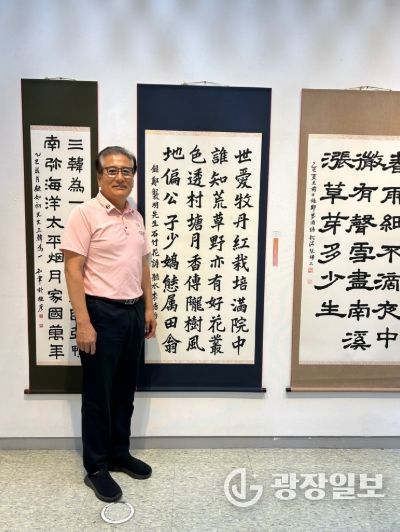 三韓為一
南弥海洋太平烟月家國萬年
世愛牡丹紅栽培滿院中
誰知荒草野亦有好花叢
色透村塘月香傳隴樹風
地偏公子少嬌態属田翁
錄鄭襲明先生石竹花詩
春雨細不滴夜中
微有聲雪盡南溪
漲草芽多少生
광장일보